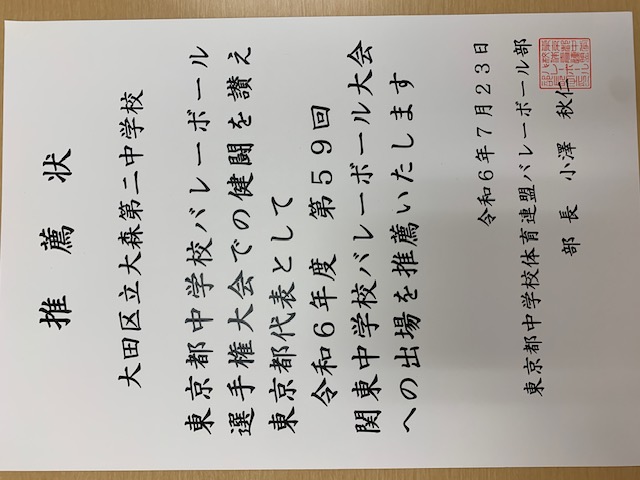 推薦状
大田区立大森第二中学校
東京都中学校バレーボール
選手権大会での健闘を讃え
東京都代表として
令和６年度　第５９回
関東中学校バレーボール大会
への出場を推薦いたします
令和６年７月２３日
東京都中学校体育連盟バレーボール部
部　長　小澤　秋仁